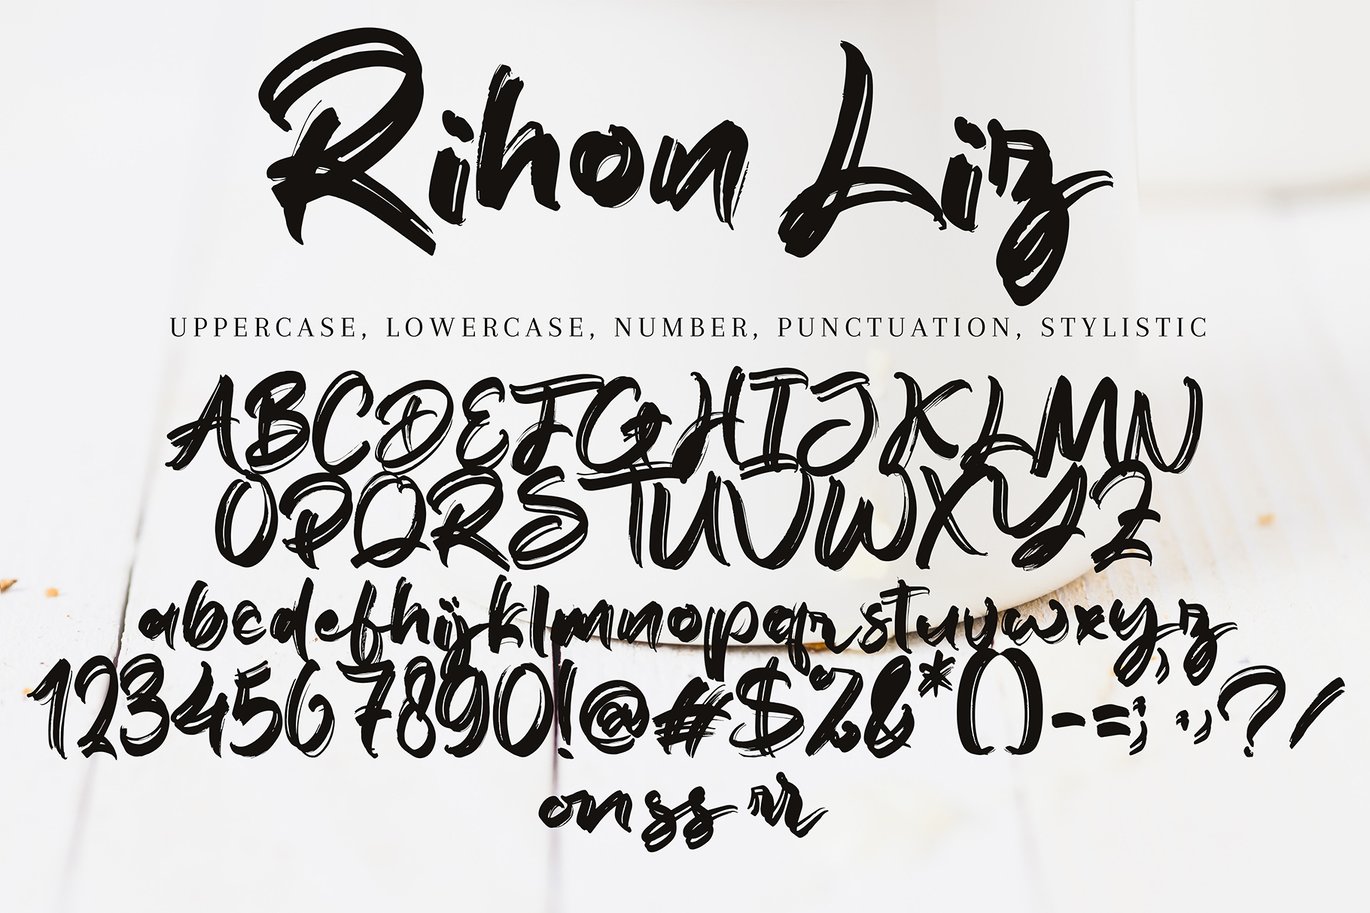 Rihon Liz
UPPERCASE, LOWERCASE, NUMBER, PUNCTUATION, STYLISTIC
ABCDEFGHIJKLMN
OPQRSTUVWXYZ
abcdefhijklmnopqrstuvwxyz
1234567890!@#$%&*()-=; ",?/
on ss rr